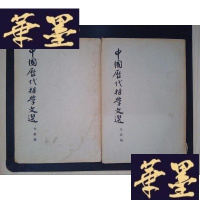 華墨
中國歷代哲學文選
中國歷代哲學文選
華墨